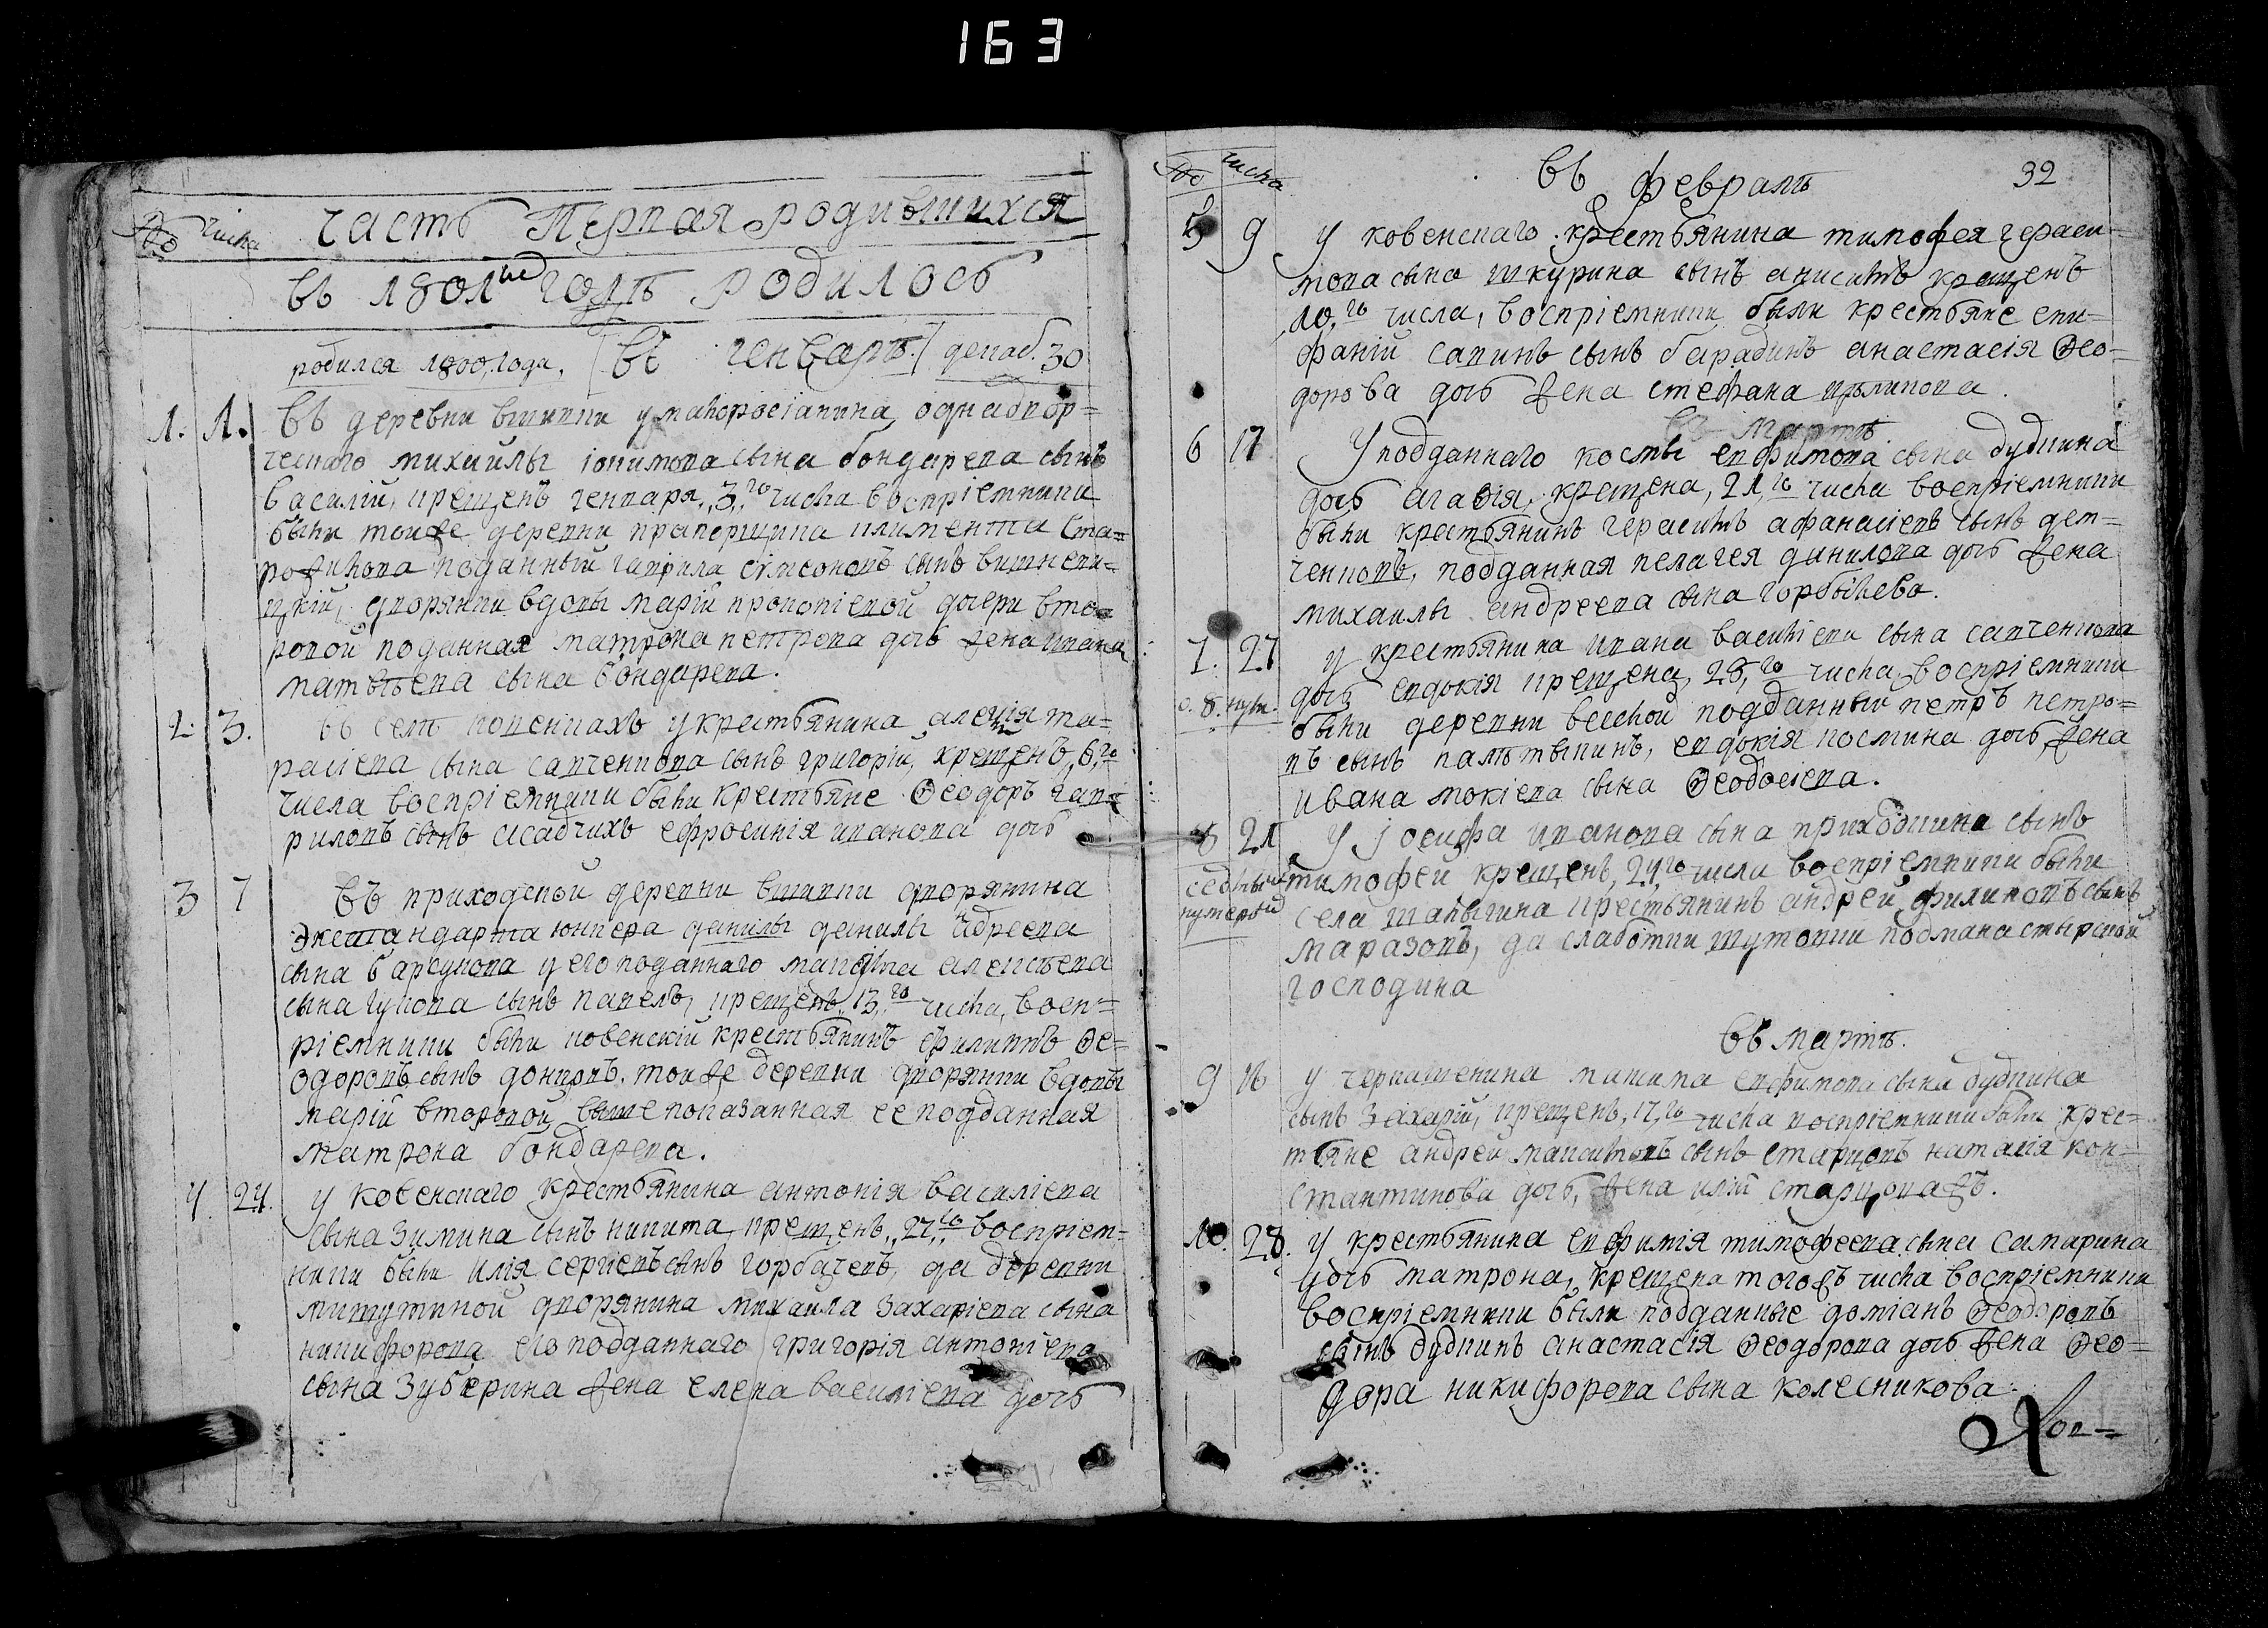 163
№ числа часть Первая родившихся
въ 1801мъ годѣ родилось
родился 1800, года, въ генварѣ. декаб. 30
1. 1. въ деревни вшивки у малоросіанина однадвор=
ческаго михаилы іоакимова сына бондарева сынъ
василій, крещенъ генваря, 3,го числа воспріемники
были тоиже деревни прапорщика климента Ста=
рожилова поданный гаврила сімеоновъ сынъ
дворянки вдовы маріи прокопіевой дочери вто=
ровой поданная матрона петрова дочь жена ивана
матвѣева сына бондарева.
2. 3. въ селѣ ковенкахъ у крестьянина алеѯія та=
расіева сына савченкова сынъ григорій, крещенъ, 6,го
числа воспріемники были крестьяне Ѳеодоръ гав=
риловъ сынъ асадчихъ ефросинія иванова дочь
3 7 въ приходской деревни вшивки дворянина
экстандарта юнкера данилы данилы
сына у его поданнаго маѯима алексѣева
сына гукова сынъ павелъ, крещенъ, 13,го числа, восп=
ріемники были ковенскій крестьянинъ филиппъ Ѳе=
одоровъ сынъ донцовъ. тоиже деревни дворянки вдовы
маріи второвой вышепоказанная ее подданная
матрона бондарева.
4. 24. у ковенскаго крестьянина антонія василіева
сына зимина сынъ никита, крещенъ, 27,го воспріем=
ники были илія сергіевъ сынъ горбачевъ, да деревни
мишуткиной дворянина михаила захаріева сына
никифорова его подданнаго григорія антоніева
сына зуберина жена елена василіева дочь
№ числа въ февралѣ 32
5 9 у ковенскаго крестьянина тимофея гераси=
мова сына шкурина сынъ анисимъ крещенъ
10,го числа, воспріемники были крестьяне епи=
фаній савинъ сынъ барадинъ анастасія Ѳео=
дорова дочь жена стефана
въ мартѣ
6 17 У подданнаго косты евфимова сына дудкина
дочь агафія, крещена, 21,го числа воспріемники
были крестьянинъ герасимъ афанасіевъ сынъ дем=
ченковъ, подданная пелагея данилова дочь жена
михаилы андреева сына горбылева.
7. 27 у крестьянина ивана василіева сына савченкова
дочь евдокія крещена, 28,го числа, воспріемники
о. 8. нум. были деревни веселой подданный петръ петро=
въ сынъ евдокія космина дочь жена
ивана мокіева сына Ѳеодосіева.
8 21 У іосифа иванова сына приходкина сынъ
седмый тимофей крещенъ, 24,го числа воспріемники были
нумеромъ села шалыгина крестьянинъ андрей филиповъ сынъ
маразовъ, да слаботки шутовки
господина
въ мартѣ.
9 16 у черкашенина маѯима евфимова сына дудкина
сынъ захарій, крещенъ, 17,го числа воспріемники были крес=
тьяне андрей маѯимовъ сынъ старцовъ наталія кон=
стантинова дочь, жена илій старцова жъ.
10. 28. у крестьянина евфимія тимофеева сына самарина
дочь матрона, крещена тогожъ числа воспріемники
воспріемники были подданные доміанъ Ѳеодоровъ
сынъ дудкинъ анастасія Ѳеодорова дочь жена Ѳео=
дора никифорова сына колесникова.